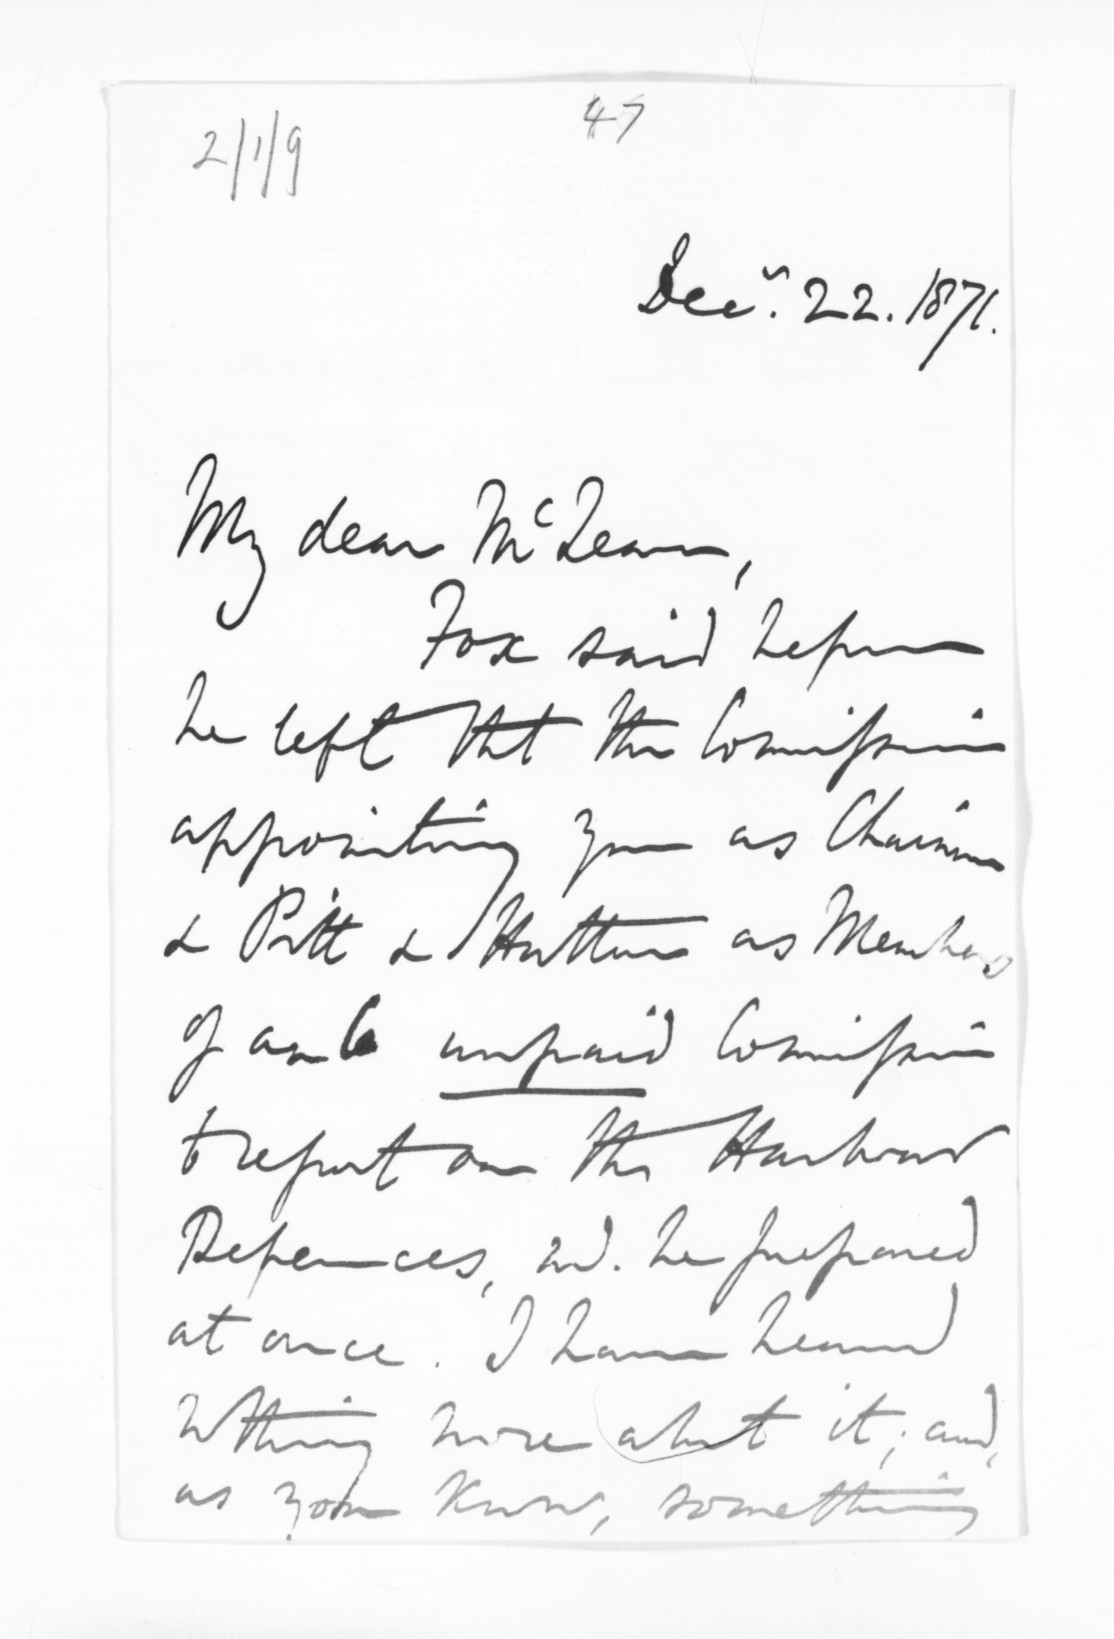 2/1/9
47
Decr. 22. 1871.
My dear McLean,
Fox said before
he left that the Commission
appointing you as Chairman
& Pitt & Hutton as Members
of an unpaid Commission
to report on the Harbour
Defences, wd. be prepared
at once. I have heard
nothing more about it; and,
as you know, something